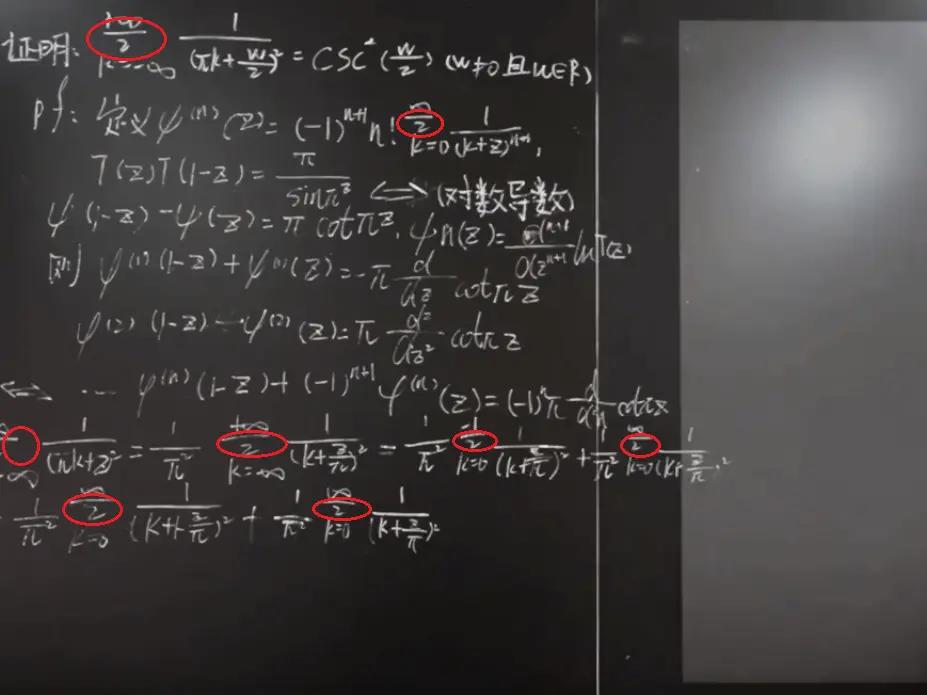 证明: \sum_{k=-\infty}^{+\infty} \frac{1}{(πk+\frac{w}{2})^2} = csc^2(\frac{w}{2}) (w≠0且w∈R)
pf: 定义 ψ^{(n)}(z)=(-1)^{n+1} n! \sum_{k=0}^{\infty} \frac{1}{(k+z)^{n+1}},
Γ(z)Γ(1-z)=\frac{π}{sinπz} ⟺ (对数导数)
ψ(1-z)-ψ(z)=π cotπz, ψn(z)=\frac{d^{n+1}}{dz^{n+1}} lnΓ(z)
则 ψ^{(1)}(1-z)+ψ^{(1)}(z)=-π \frac{d}{dz} cotπz
ψ^{(2)}(1-z)-ψ^{(2)}(z)=π \frac{d^2}{dz^2} cotπz
⟺ ... ψ^{(n)}(1-z)+(-1)^{n+1} ψ^{(n)}(z)=(-1)^n π \frac{d}{dz^n} cotπz
\frac{1}{(πk+z)^2} = \frac{1}{π^2} \sum_{k=-\infty}^{+\infty} \frac{1}{(k+\frac{z}{π})^2} = \frac{1}{π^2} \sum_{k=0}^{-1} \frac{1}{(k+\frac{z}{π})^2} + \frac{1}{π^2} \sum_{k=0}^{\infty} \frac{1}{(k+\frac{z}{π})^2}
\frac{1}{π^2} \sum_{k=0}^{\infty} \frac{1}{(k+1-\frac{z}{π})^2} + \frac{1}{π^2} \sum_{k=0}^{\infty} \frac{1}{(k+\frac{z}{π})^2}